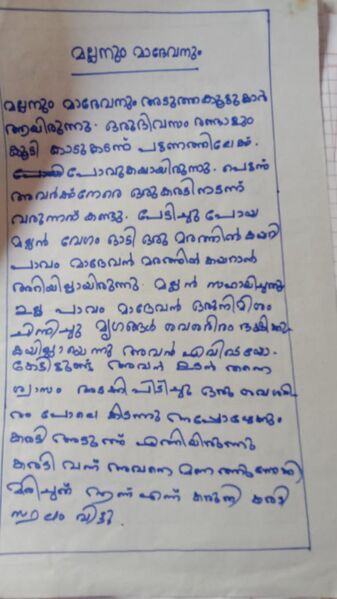 മല്ലനും മാദേവനും
മല്ലനും മാദേവനും അടുത്തകൂട്ടുകാർ
ആയിരുന്നു. ഒരുദിവസം രണ്ടാളും
കൂടി കാടുകടന്ന് പട്ടണത്തിലേക്ക്
പോവുകയായിരുന്നു. പെട്ടന്ന്
അവർക്ക്നേരെ ഒരുകരടിനടന്ന്
വരുന്നത് കണ്ടു. പേടിച്ചു പോയ
മല്ലൻ വേഗം ഓടി ഒരു മരത്തിൽ കയറി
പാവം മാദേവൻ മരത്തിൽ കയറാൻ
അറിയില്ലായിരുന്നു. മല്ലൻ സഹായിച്ചതു
മില്ല പാവം മാദേവൻ ഒരുനിമിശം
ചിന്തിച്ചു മൃഗങ്ങൾ ശവശരീരം ഭക്ഷിക്കു
കയില്ലായെന്നു അവൻ എവിടയോ
കേട്ടിട്ടുണ്ട് അവൻ ഉടൻ തന്നെ
ശ്വാസം അടക്കി പിടിച്ചു ഒരു ശവശരീ
രം പോലെ കിടന്നു അപ്പോഴേക്കും
കരടി അടുത്ത് എത്തിയിരുന്നു
കരടി വന്ന് അവനെ മണത്തുനോക്കി
മരിച്ചത് ആണ് എന്ന് കരുതി കരടി
സ്ഥലം വിട്ടു.